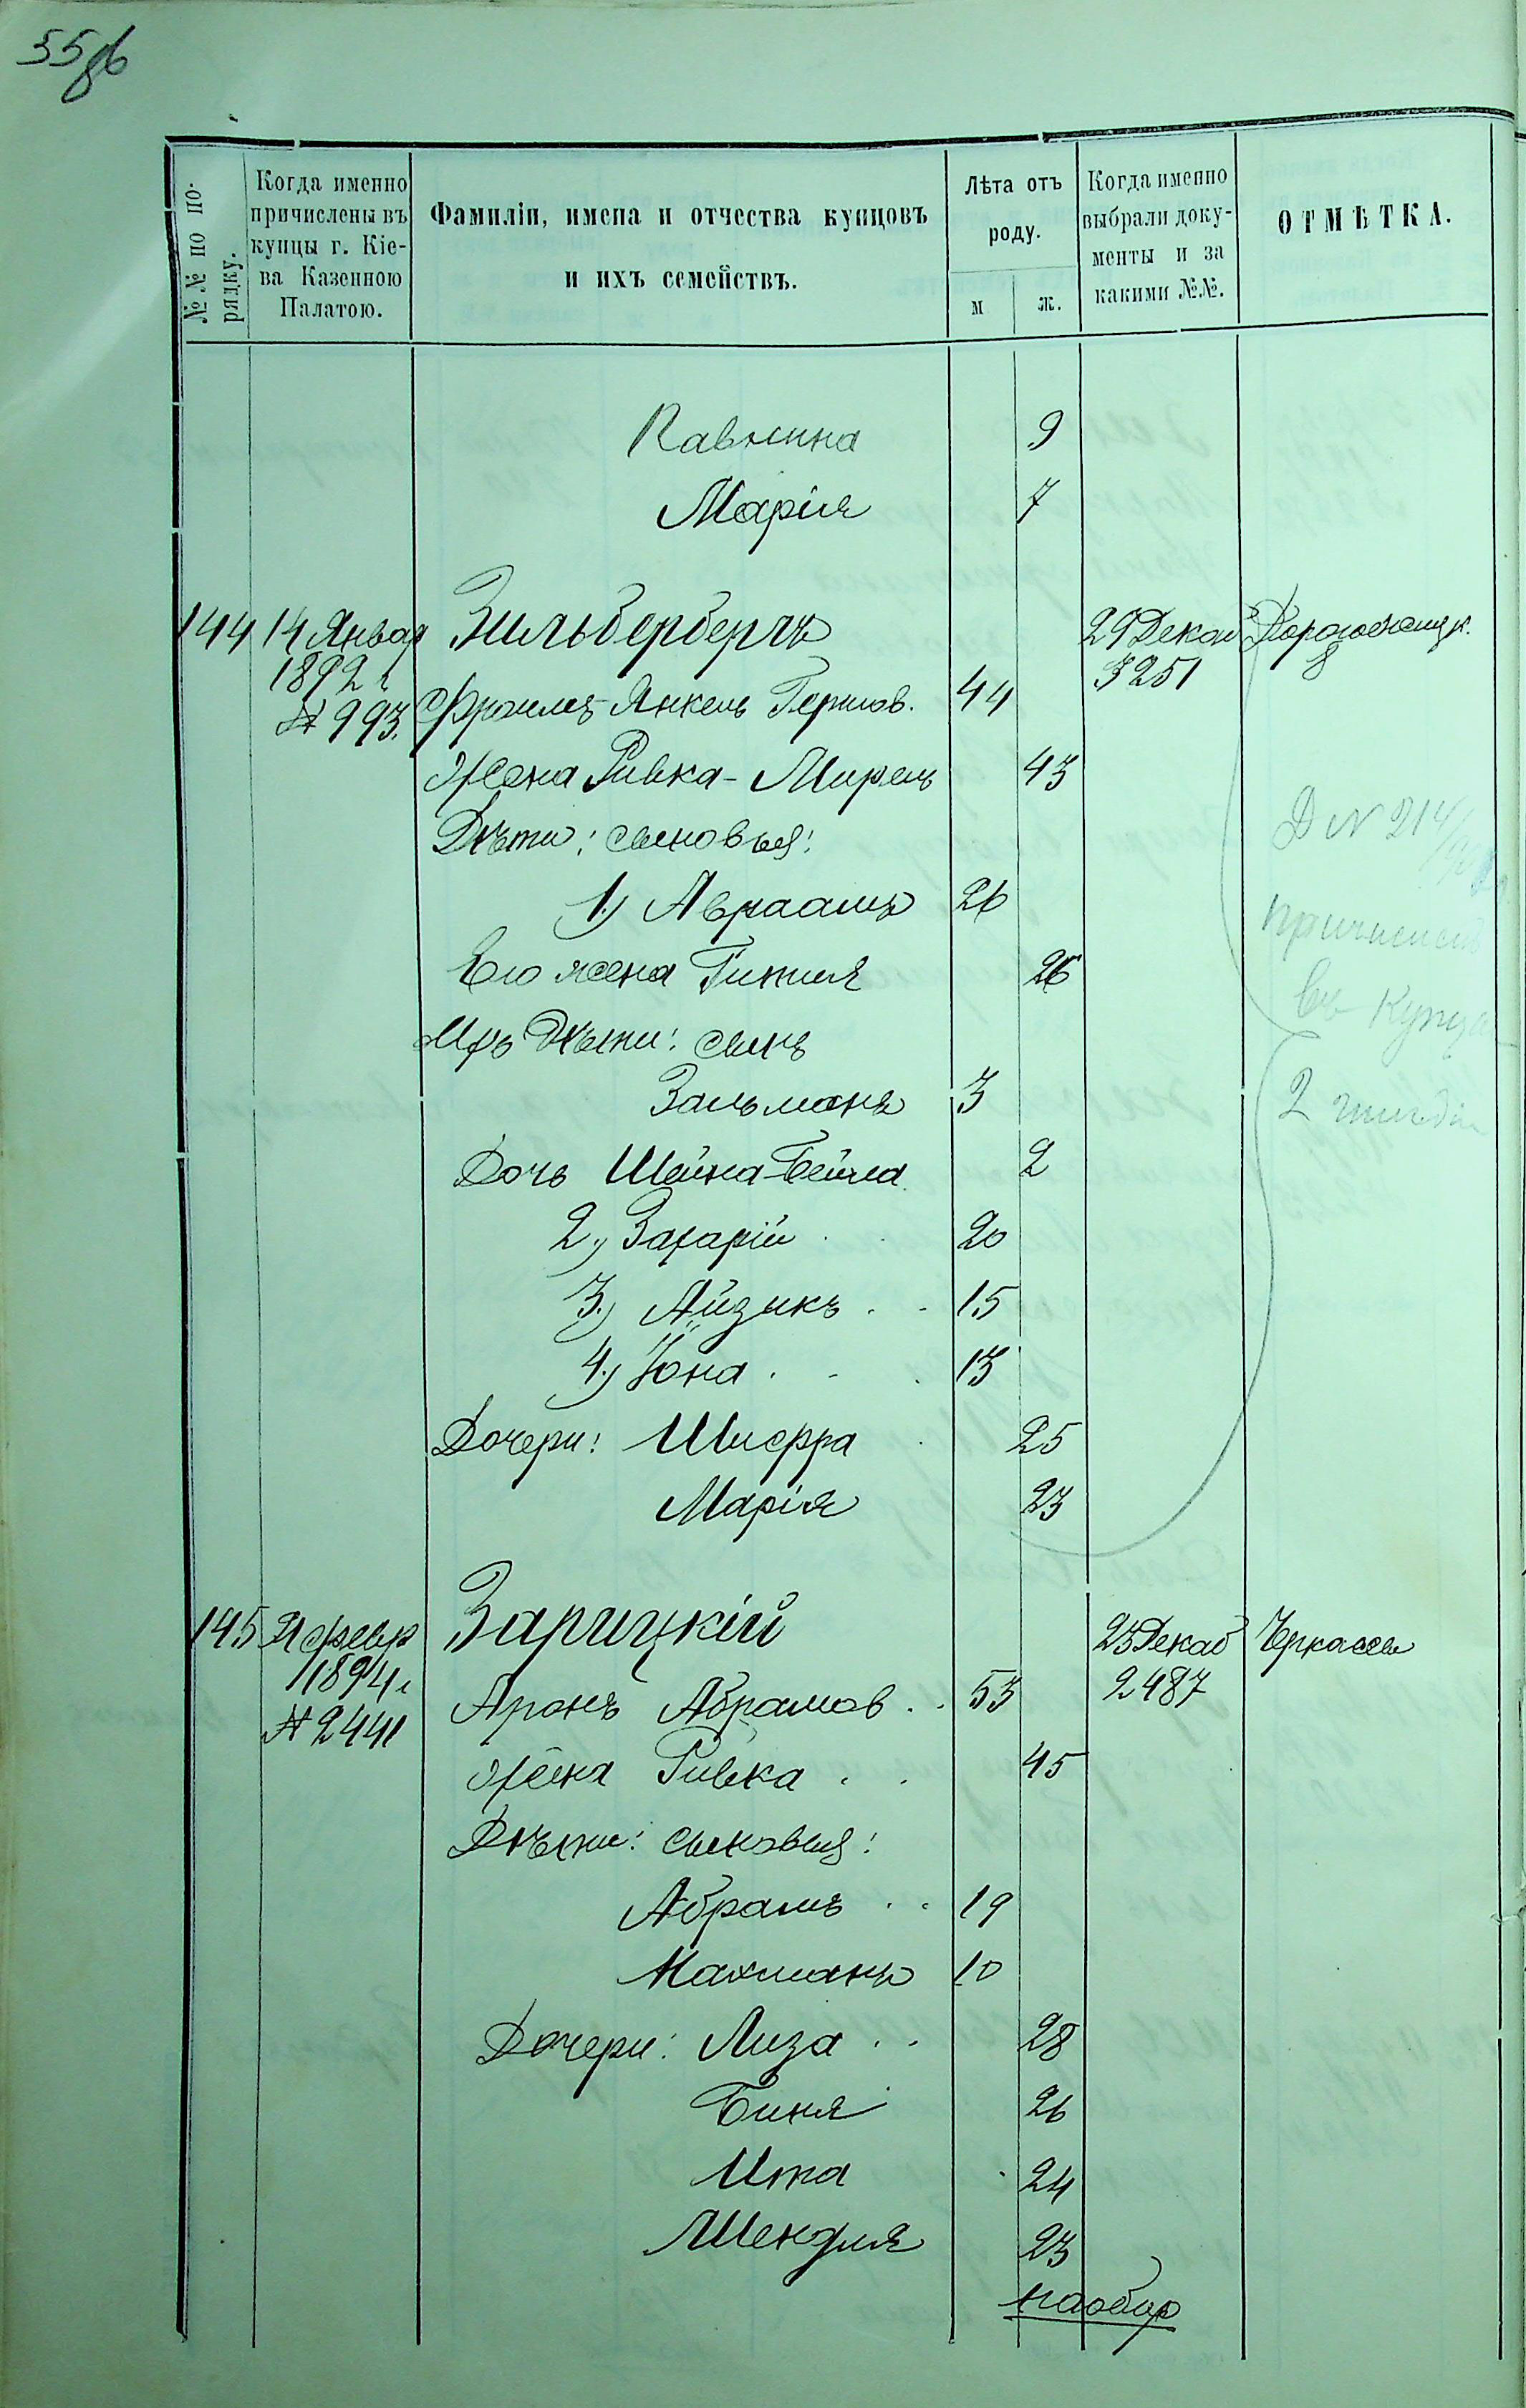 55об
№№ по по-
рядку.
Когда именно
причислены въ
купцы г. Кіе-
ва Казенною
Палатою.
Фамиліи, имена и отчества купцовъ
и ихъ семействъ.
Лѣта отъ
роду.
м ж.
Когда именно
выбрали доку-
менты и за
какими №№.
ОТМѢТКА.
9
Марія 7
144 14 Январ Зильберберъ 29 Декаб
1892 г 3251 8
№ 993. Фроимъ-Янкель Гершов. 44
Жена Ривка-Мирель 43
Дѣти: сыновья:
Д N 214
1.) Авраамъ 26
причислен
Его жена Гитля 26
въ купцы
Ихъ Дѣти: сынъ
Зальманъ 3
2 гильдіи
Дочь Шейна-Бейла 2
2.) Захарій 20
3.) Айзикъ 15
4.) Іона 13
Дочери: Шифра 25
Марія 23
145 21 февр Зарицкій 23 Декаб Черкассы
1894 г 2487
№ 2441 Аронъ Абрамов. 53
Жена Ривка 45
Дѣти: сыновья:
Абрамъ 19
Нахманъ 10
Дочери: Лиза 28
Биня 26
Ита 24
Шендля 23
наобор